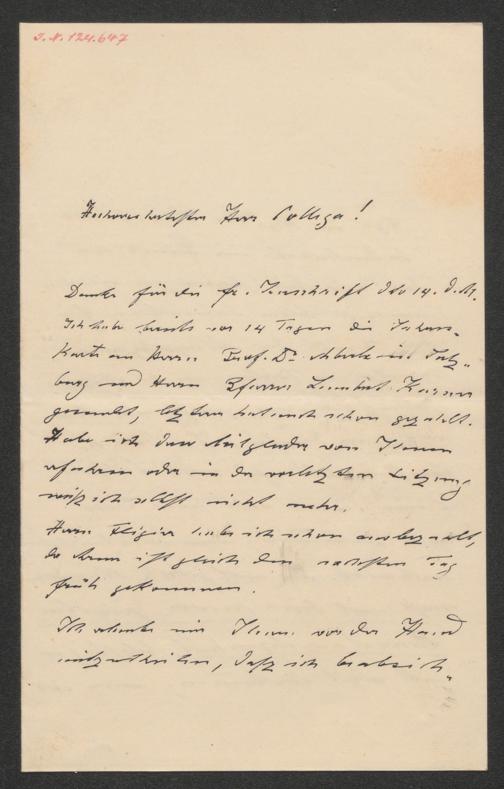 J. N. 124.647
Hochverehrtester Herr College!
Danke für die fr. Zuschrift dto 14. d. M.
Ich habe bereits vor 14 Tagen die
Karte an Herrn Prof. Dr. in Salz-
burg und Herrn Pfarrer
gesandt, letzterer hat auch schon gezahlt.
Habe ich diese Mitglieder von Ihnen
erfahren oder in der vorletzten Sitzung
weiß ich selbst nicht mehr.
Herrn Fligier habe ich schon ausbezahlt,
der Arme ist gleich den nächsten Tag
früh gekommen.
Ich erlaube mir Ihnen vor der Hand
mitzutheilen, daß ich beabsich-